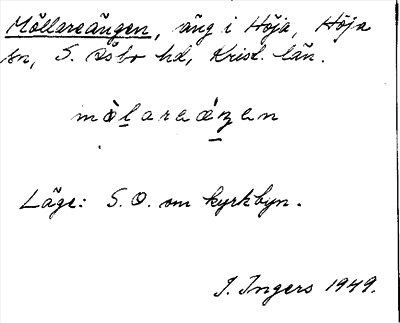 Möllareängen, äng i Höja, Höja
sn, S. Åsbo hd, Krist. län.
mòlareáŋen
Läge: S.O. om kyrkbyn.
I. Ingers 1949.